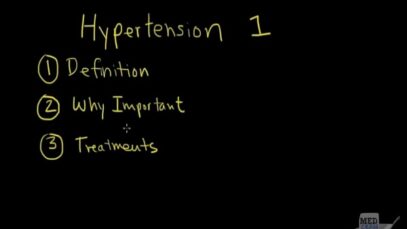 Hypertension 1
1 Definition
2 Why Important
3 Treatments
MED